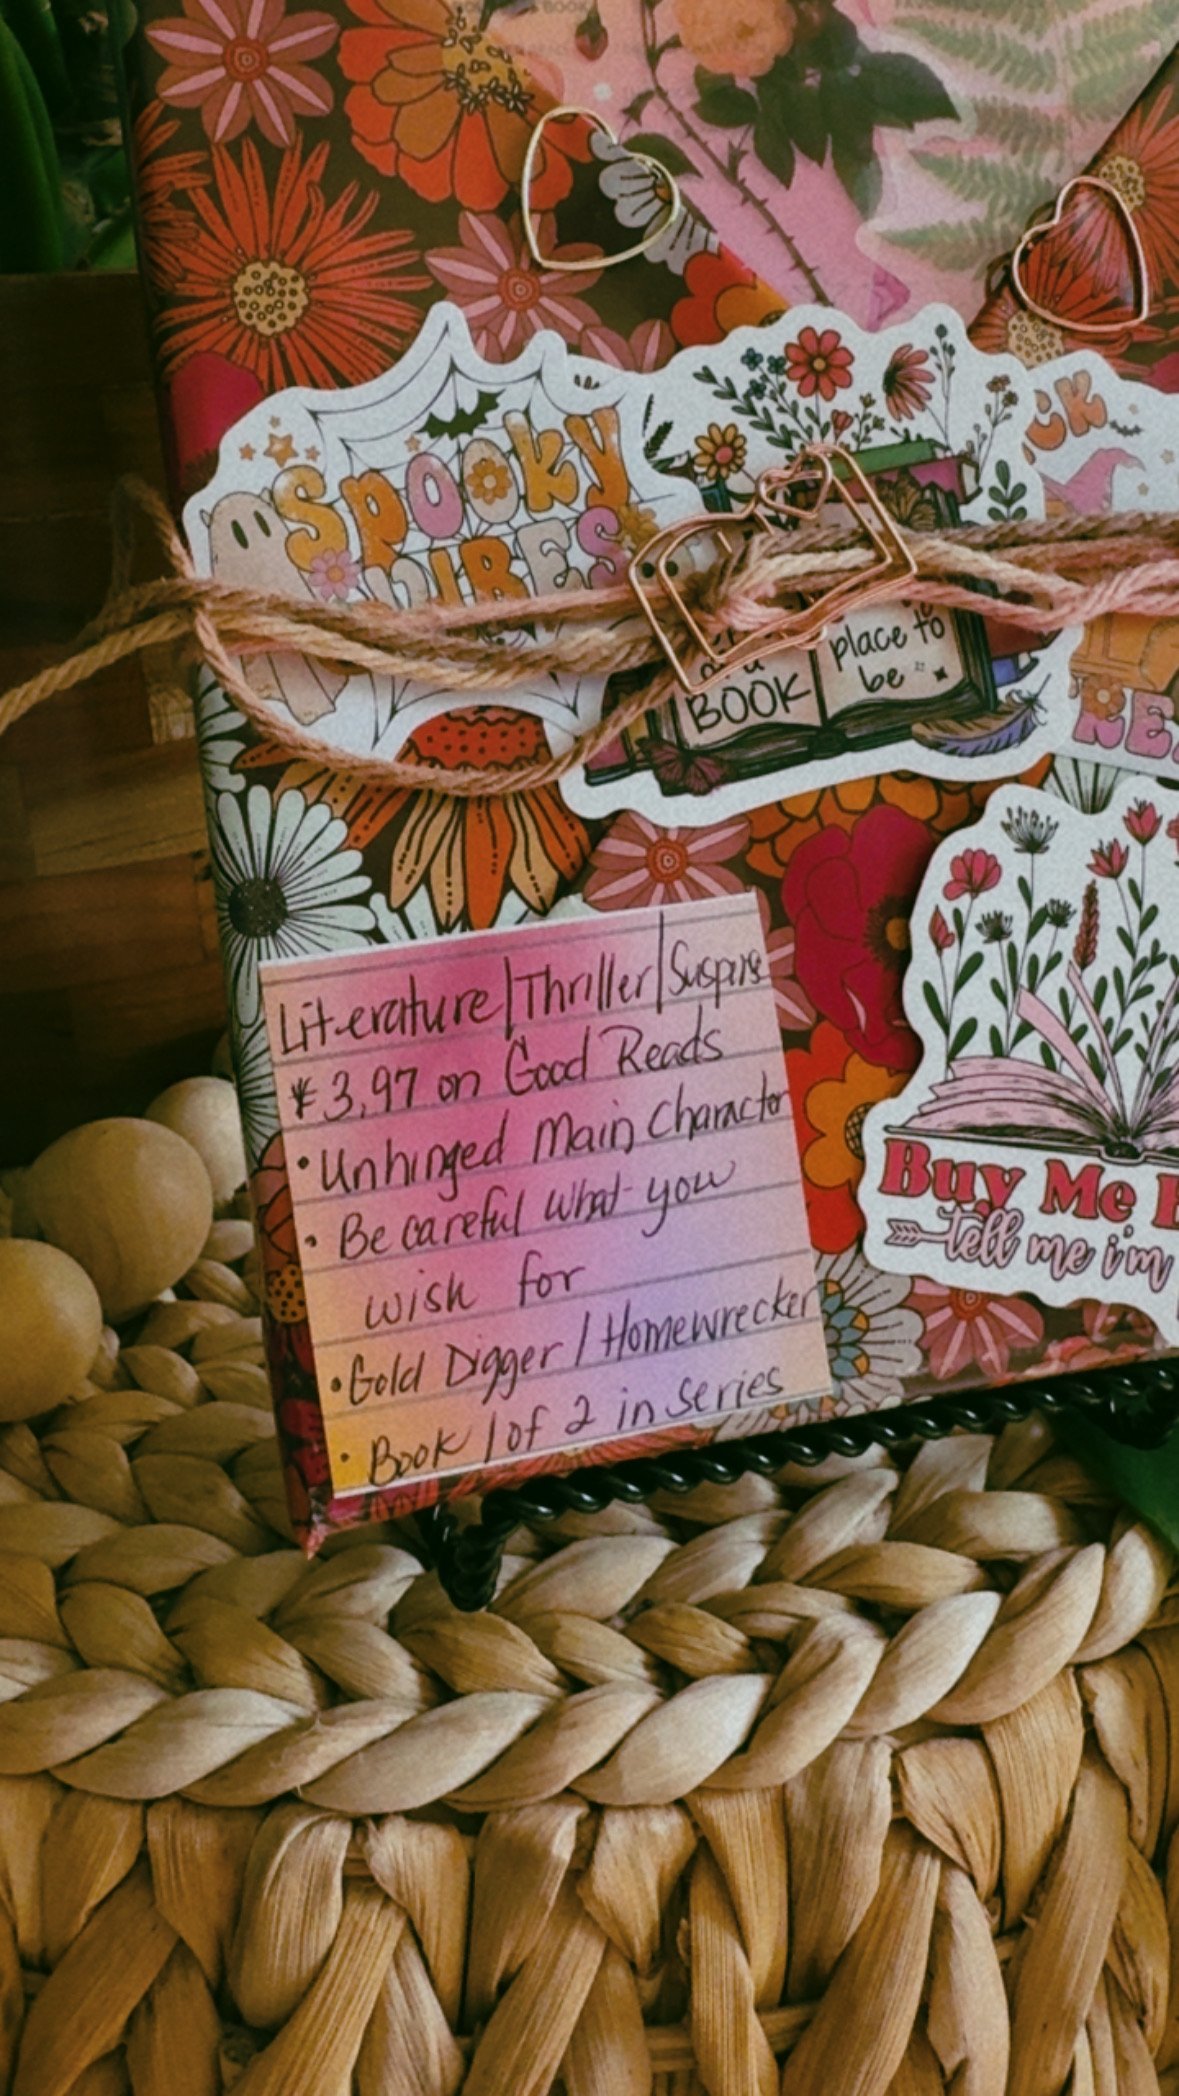 BOOK
SPOOKY
VIBES
CK
place to
be
BOOK
RE
Literature/Thriller/Suspense
* 3,97 on Good Reads
• Unhinged Main Character
• Be careful what you
wish for
• Gold Digger / Homewrecker
• Book 1 of 2 in series
Buy Me B
tell me i'm